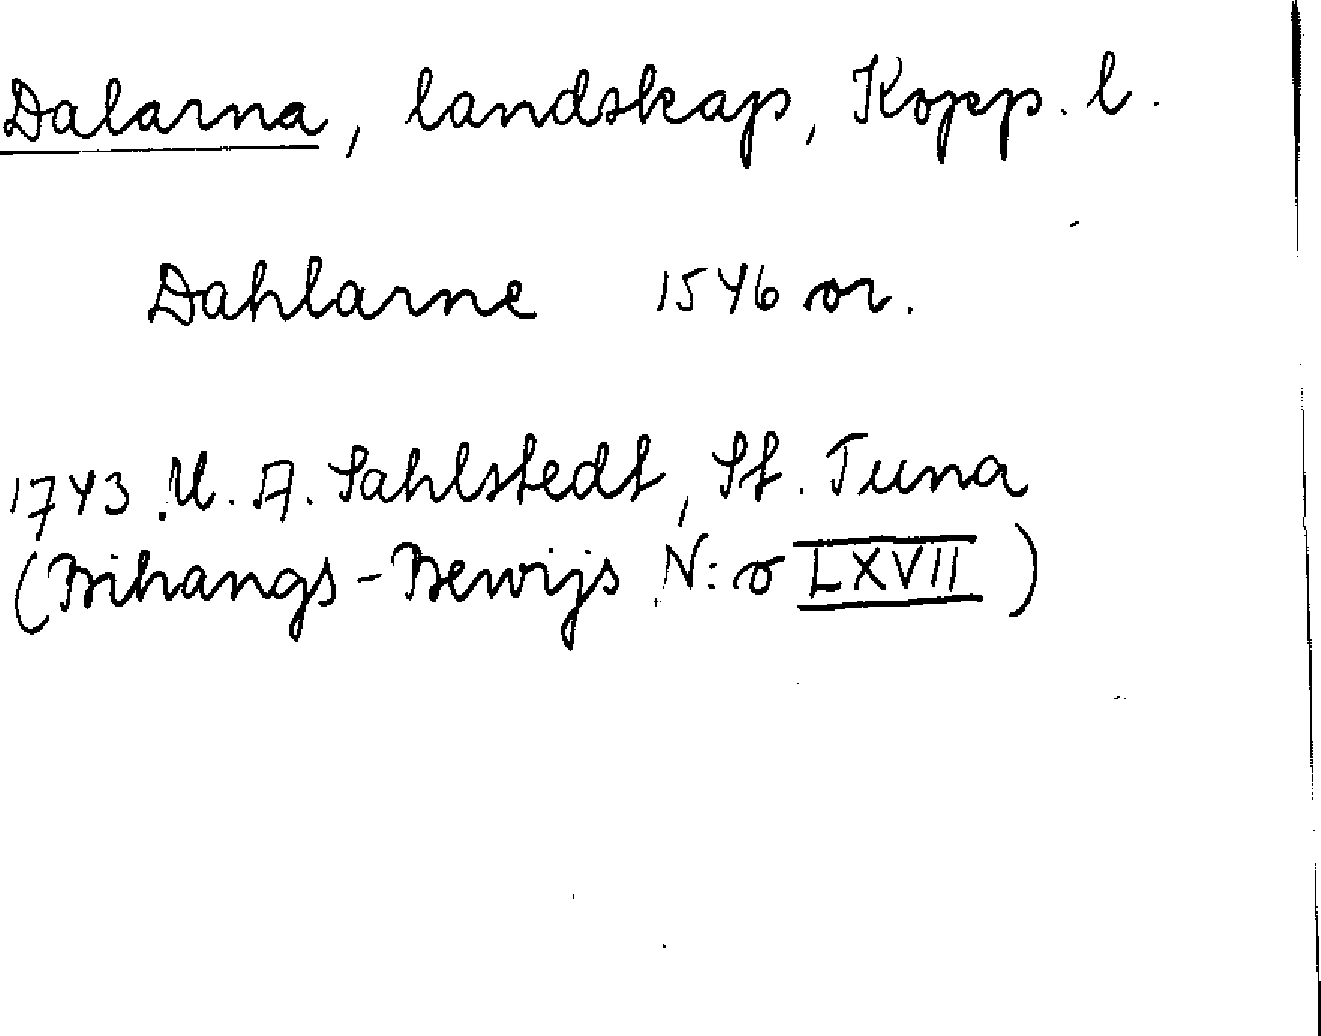 Dalarna, landskap, Kopp. l.
Dahlarne 1546 or.
1743. U. A. Sahlstedt, St. Tuna
(Bihangs-Bewijs N:o LXVII)